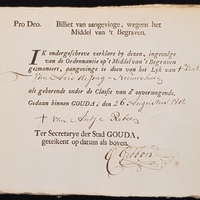 Pro Deo. Billiet van aangevinge, wegens het
Middel van 't Begraven.
IK ondergeschreve verklare by dezen, ingevolge
van de Ordonnantie op 't Middel van 't Begraven
geëmaneert, aangevinge te doen van het Lyk van 't kint
van Arie de Jong
als gehorende onder de Classis der onvermogende.
Gedaan binnen GOUDA, den 26 Augustus
+ van Antje
Ter Secretarye der Stad GOUDA,
geteikent op datum als boven.